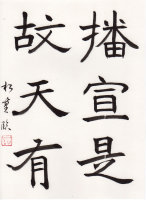 播宣是
故天有
臨